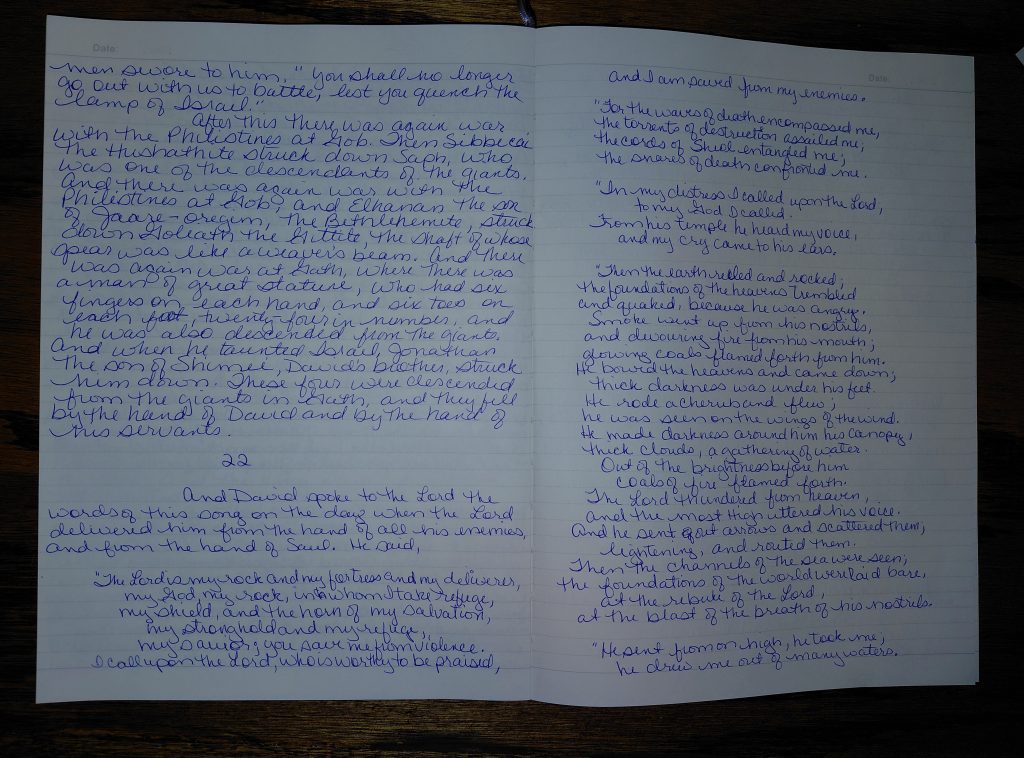 Date:
men swore to him, "You shall no longer
go out with us to battle, lest you quench the
lamp of Israel."
After this there was again war
with the Philistines at Gob. Then Sibbecai
the Hushathite struck down Saph, who
was one of the descendants of the giants.
And there was again war with the
Philistines at Gob, and Elhanan the son
of Jaare-oregim, the Bethlehemite, struck
down Goliath the Gittite, the shaft of whose
spear was like a weaver's beam. And there
was again war at Gath, where there was
a man of great stature, who had six
fingers on each hand, and six toes on
each foot, twenty-four in number, and
he was also descended from the giants.
And when he taunted Israel, Jonathan
the son of Shimei, David's brother, struck
him down. These four were descended
from the giants in Gath, and they fell
by the hand of David and by the hand of
his servants.
22
And David spoke to the Lord the
words of this song on the day when the Lord
delivered him from the hand of all his enemies,
and from the hand of Saul. He said,
"The Lord is my rock and my fortress and my deliverer,
my God, my rock, in whom I take refuge,
my shield, and the horn of my salvation,
my stronghold and my refuge,
my savior; you save me from violence.
I call upon the Lord, who is worthy to be praised,
Date:
and I am saved from my enemies.
"For the waves of death encompassed me,
the torrents of destruction assailed me;
the cords of Sheol entangled me;
the snares of death confronted me.
"In my distress I called upon the Lord,
to my God I called.
From his temple he heard my voice,
and my cry came to his ears.
"Then the earth reeled and rocked;
the foundations of the heavens trembled
and quaked, because he was angry.
Smoke went up from his nostrils,
and devouring fire from his mouth;
glowing coals flamed forth from him.
He bowed the heavens and came down;
thick darkness was under his feet.
He rode a cherub and flew;
he was seen on the wings of the wind.
He made darkness around him his canopy,
thick clouds, a gathering of water.
Out of the brightness before him
coals of fire flamed forth.
The Lord thundered from heaven,
and the Most High uttered his voice.
And he sent out arrows and scattered them;
lightening, and routed them.
Then the channels of the sea were seen;
the foundations of the world were laid bare,
at the rebuke of the Lord,
at the blast of the breath of his nostrils.
"He sent from on high, he took me;
he drew me out of many waters.